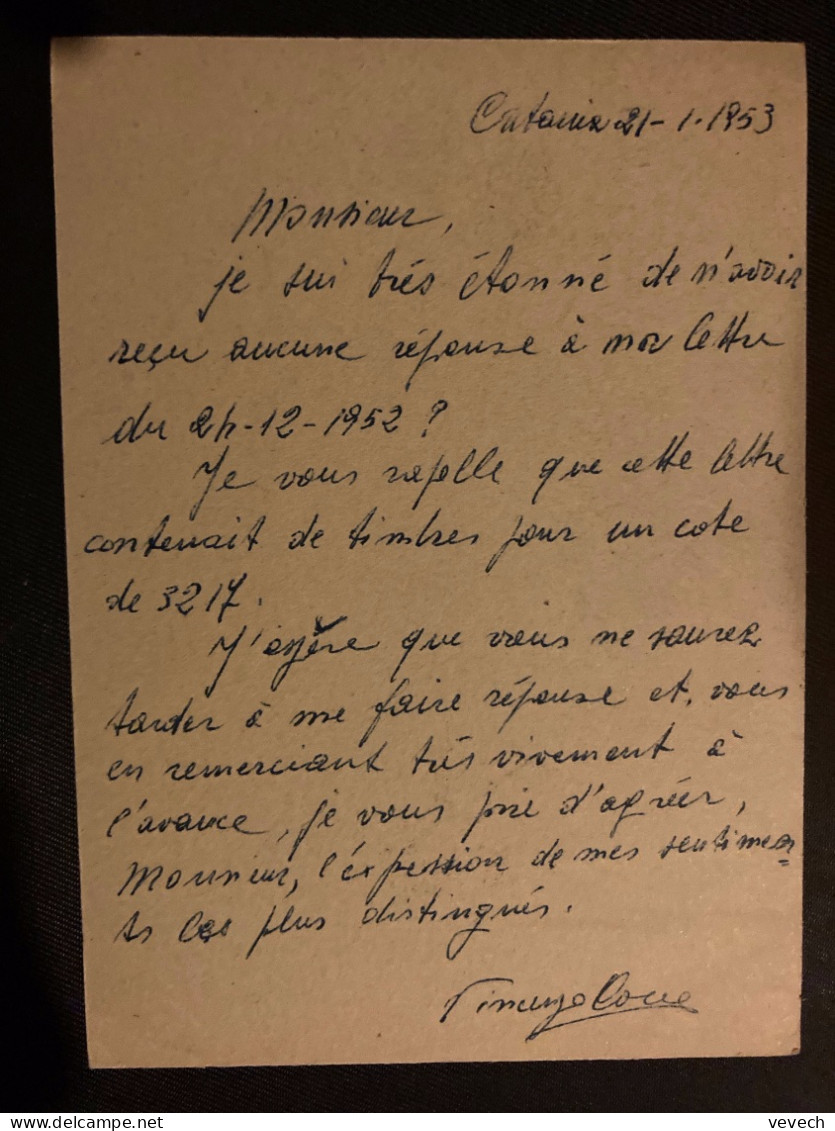 Catania 21-1-1953
Monsieur,
je sui très étonné de n'avoir
reçu aucune réponse à mon lettre
du 24-12-1952?
Je vous rapelle que cette lettre
contenait de timbres pour un cote
de 3217.
J'espère que vous ne saurez
tarder à me faire réponse et, vous
en remerciant très vivement à
l'avance, je vous prie d'agréer,
Monsieur, l'éxpession de mes sentimen=
ts les plus distingués.
Vincenzo
vevech